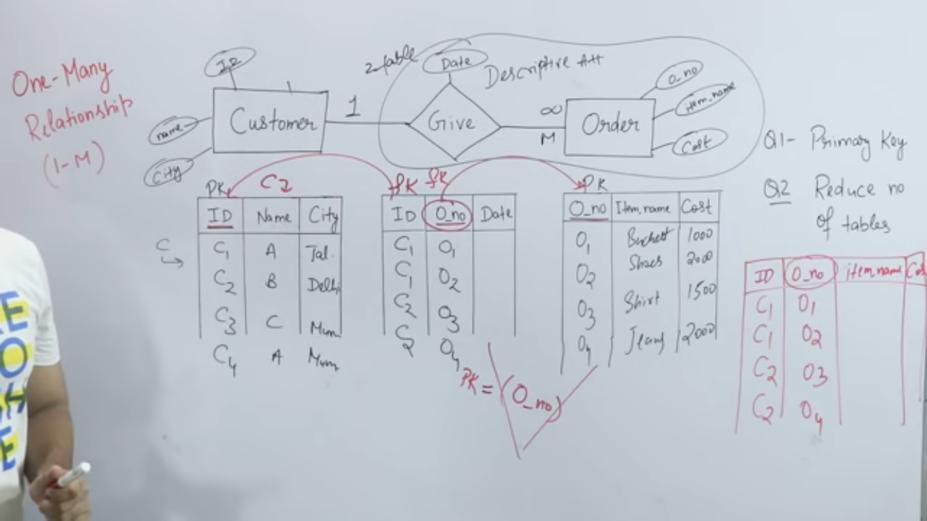 One-Many
Relationship
(1-M)
ID
name
City
Customer
1
2 table
Date
Descriptive Att
Give
∞
M
Order
O_no
item_name
Cost
Q1- Primary Key
Q2 Reduce no
of tables
PK C2
ID Name City
C1 A Jal.
C2 B Delhi
C3 C Mum
C4 A Mum
C
fk fk
ID O_no Date
C1 O1
C1 O2
C2 O3
C2 O4
PK = (O_no)
PK
O_no Item_name Cost
O1 1000
O2 Shoes 2000
O3 Shirt 1500
O4 Jeans 2000
ID O_no item_name
C1 O1
C1 O2
C2 O3
C2 O4
E
E